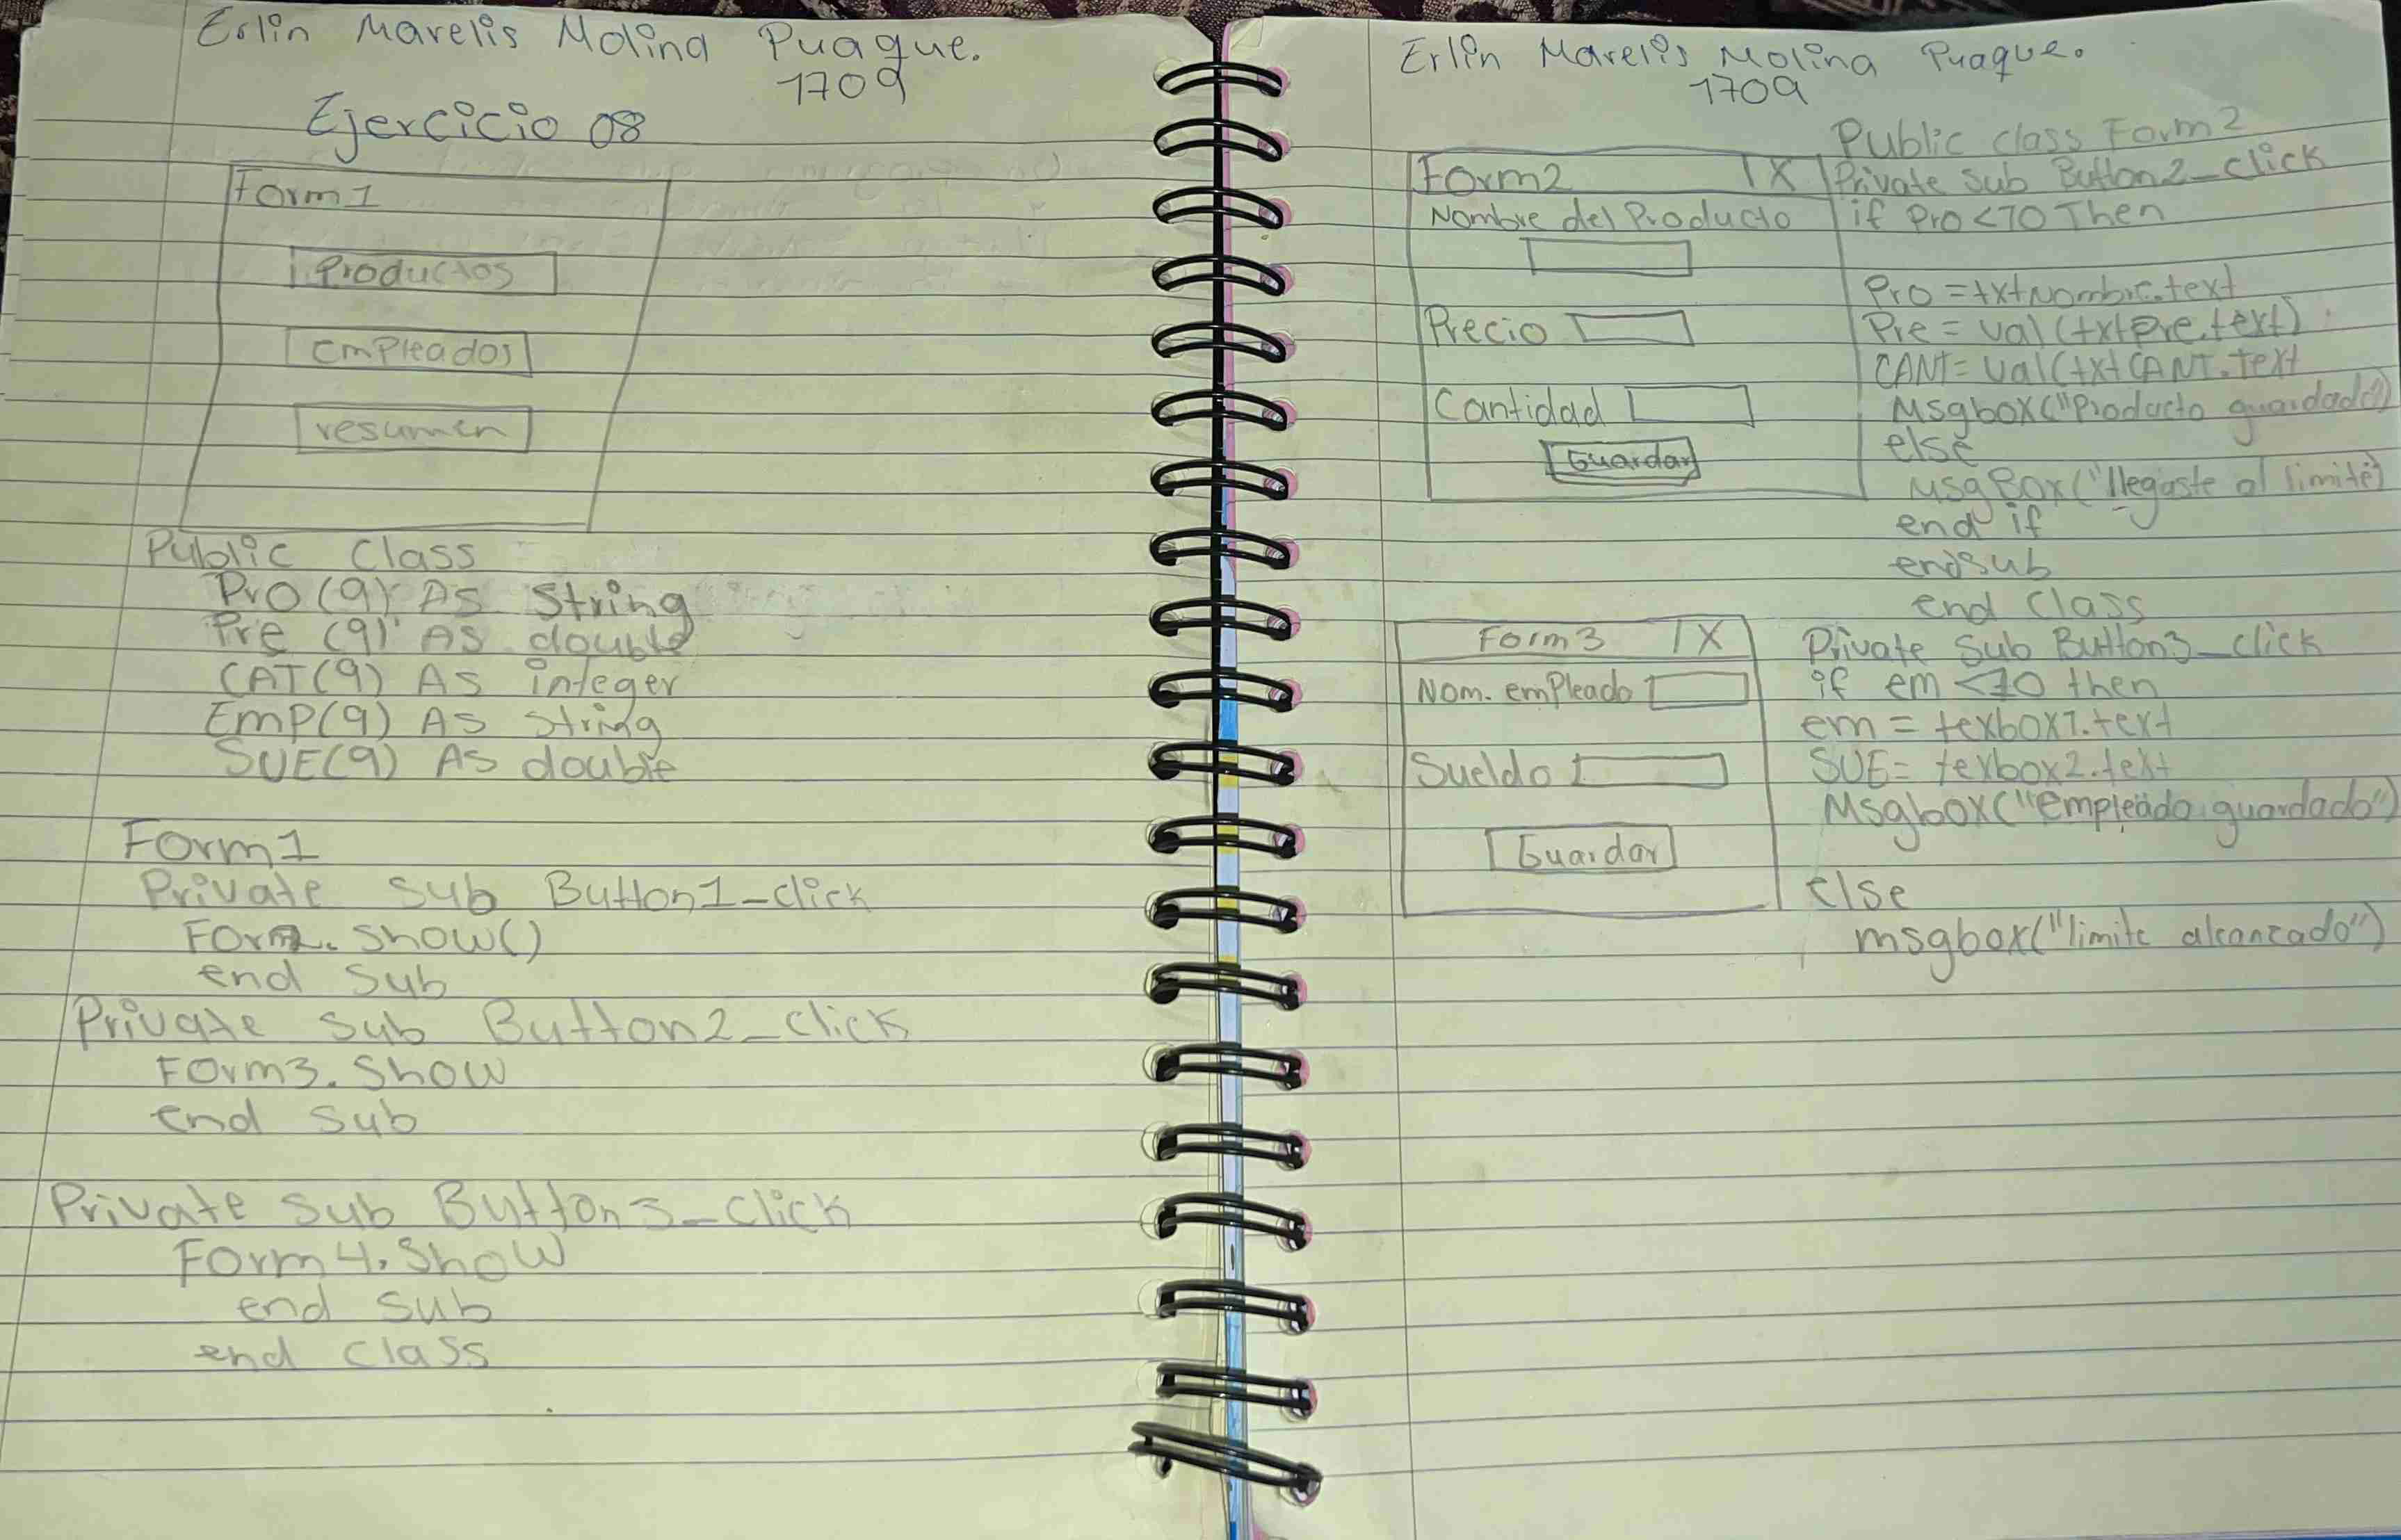 Erlin Marelis Molina Puaque.
1709
Ejercicio 08
Form1
Productos
empleados
resumen
Public Class
Pro(9) As String
Pre (9) As double
CAT(9) As integer
EMP(9) As string
SUE(9) As double
Form1
Private Sub Button1_click
Form2.show()
end sub
Private Sub Button2_click
Form3.show
end sub
Private Sub Button3_click
Form4.show
end sub
end class
Erlin Marelis Molina Puaque.
1709
Form2 X
Nombre del Producto
Precio
Cantidad
Guardar
Public class Form2
Private Sub Button2_click
if Pro<10 Then
Pro = txtNombre.text
Pre = val(txtpre.text)
CANT= val(txtCANT.text
Msgbox("Producto guardado")
else
MsgBox("llegaste al limite)
end if
endsub
end class
Form3 X
Nom. empleado
Sueldo
Guardar
Private Sub Button3_click
if em <10 then
em = texbox1.text
SUE= texbox2.text
Msgbox("empleado guardado")
else
msgbox("limite alcanzado")